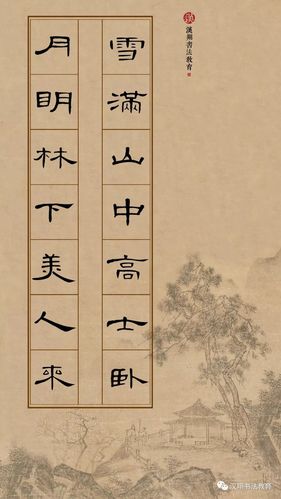 漢翔書法教育
雪滿山中高士卧
月明林下美人來
汉翔书法教育